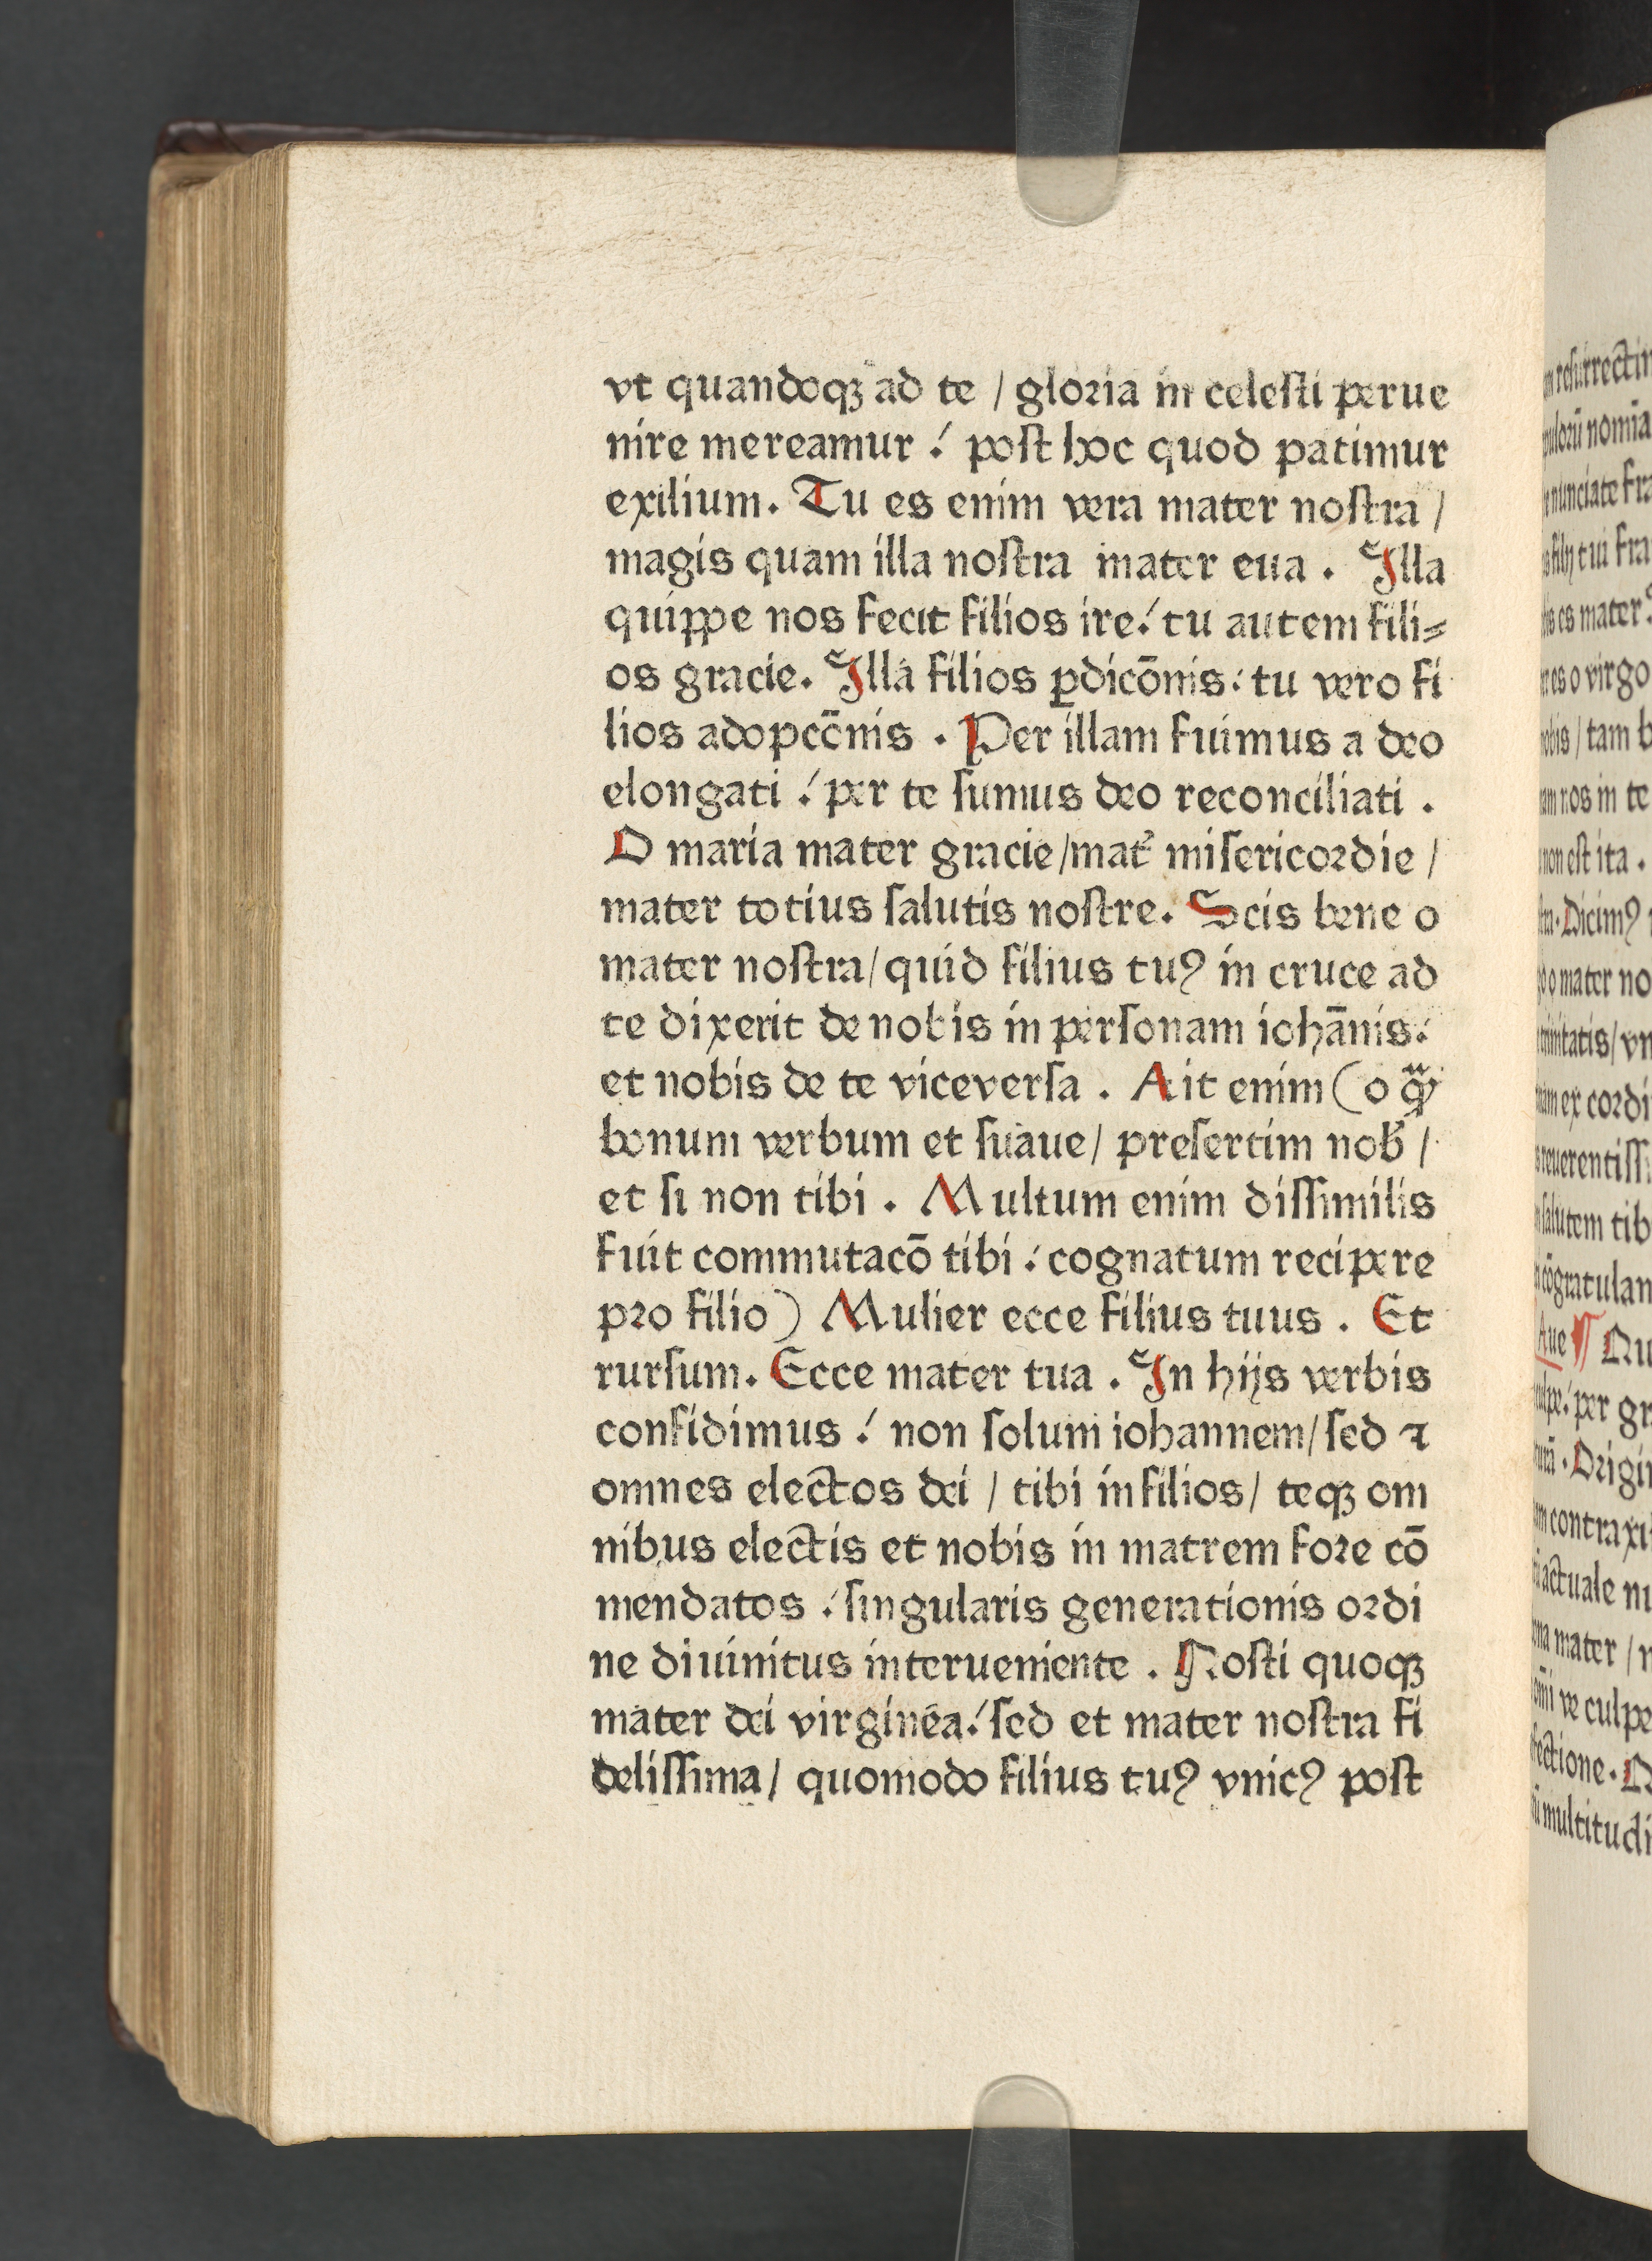 vt quandoqꝫ ad te / gloria in celesti perue
nire mereamur ⹎ post hoc quod patimur
exilium. Tu es enim vera mater nostra /
magis quam illa nostra mater eua . Illa
quippe nos fecit filios ire ⹎ tu autem fili⸗
os gracie. Illa filios ꝑdicōnis ⹎ tu vero fi
lios adopcōnis . Per illam fuimus a deo
elongati ⹎ per te sumus deo reconciliati .
O maria mater gracie/mat᷒ misericordie /
mater totius salutis nostre. Scis bene o
mater nostra/quid filius tuꝰ in cruce ad
te dixerit de nobis in personam iohānis ⹎
et nobis de te viceversa . Ait enim (o
bonum verbum et suaue/ presertim nob᷒ /
et si non tibi . Multum enim dissimilis
fuit commutacō tibi ⹎ cognatum recipere
pro filio) Mulier ecce filius tuus . Et
rursum. Ecce mater tua . In hijs verbis
confidimus ⹎ non solum iohannem/sed ⁊
omnes electos dei / tibi in filios/ teqꝫ om
nibus electis et nobis in matrem fore cō
mendatos ⹎ singularis generationis ordi
ne diuinitus interueniente . Nosti quoqꝫ
mater dei virginea ⹎ sed et mater nostra fi
delissima/ quomodo filius tuꝰ vnicꝰ post